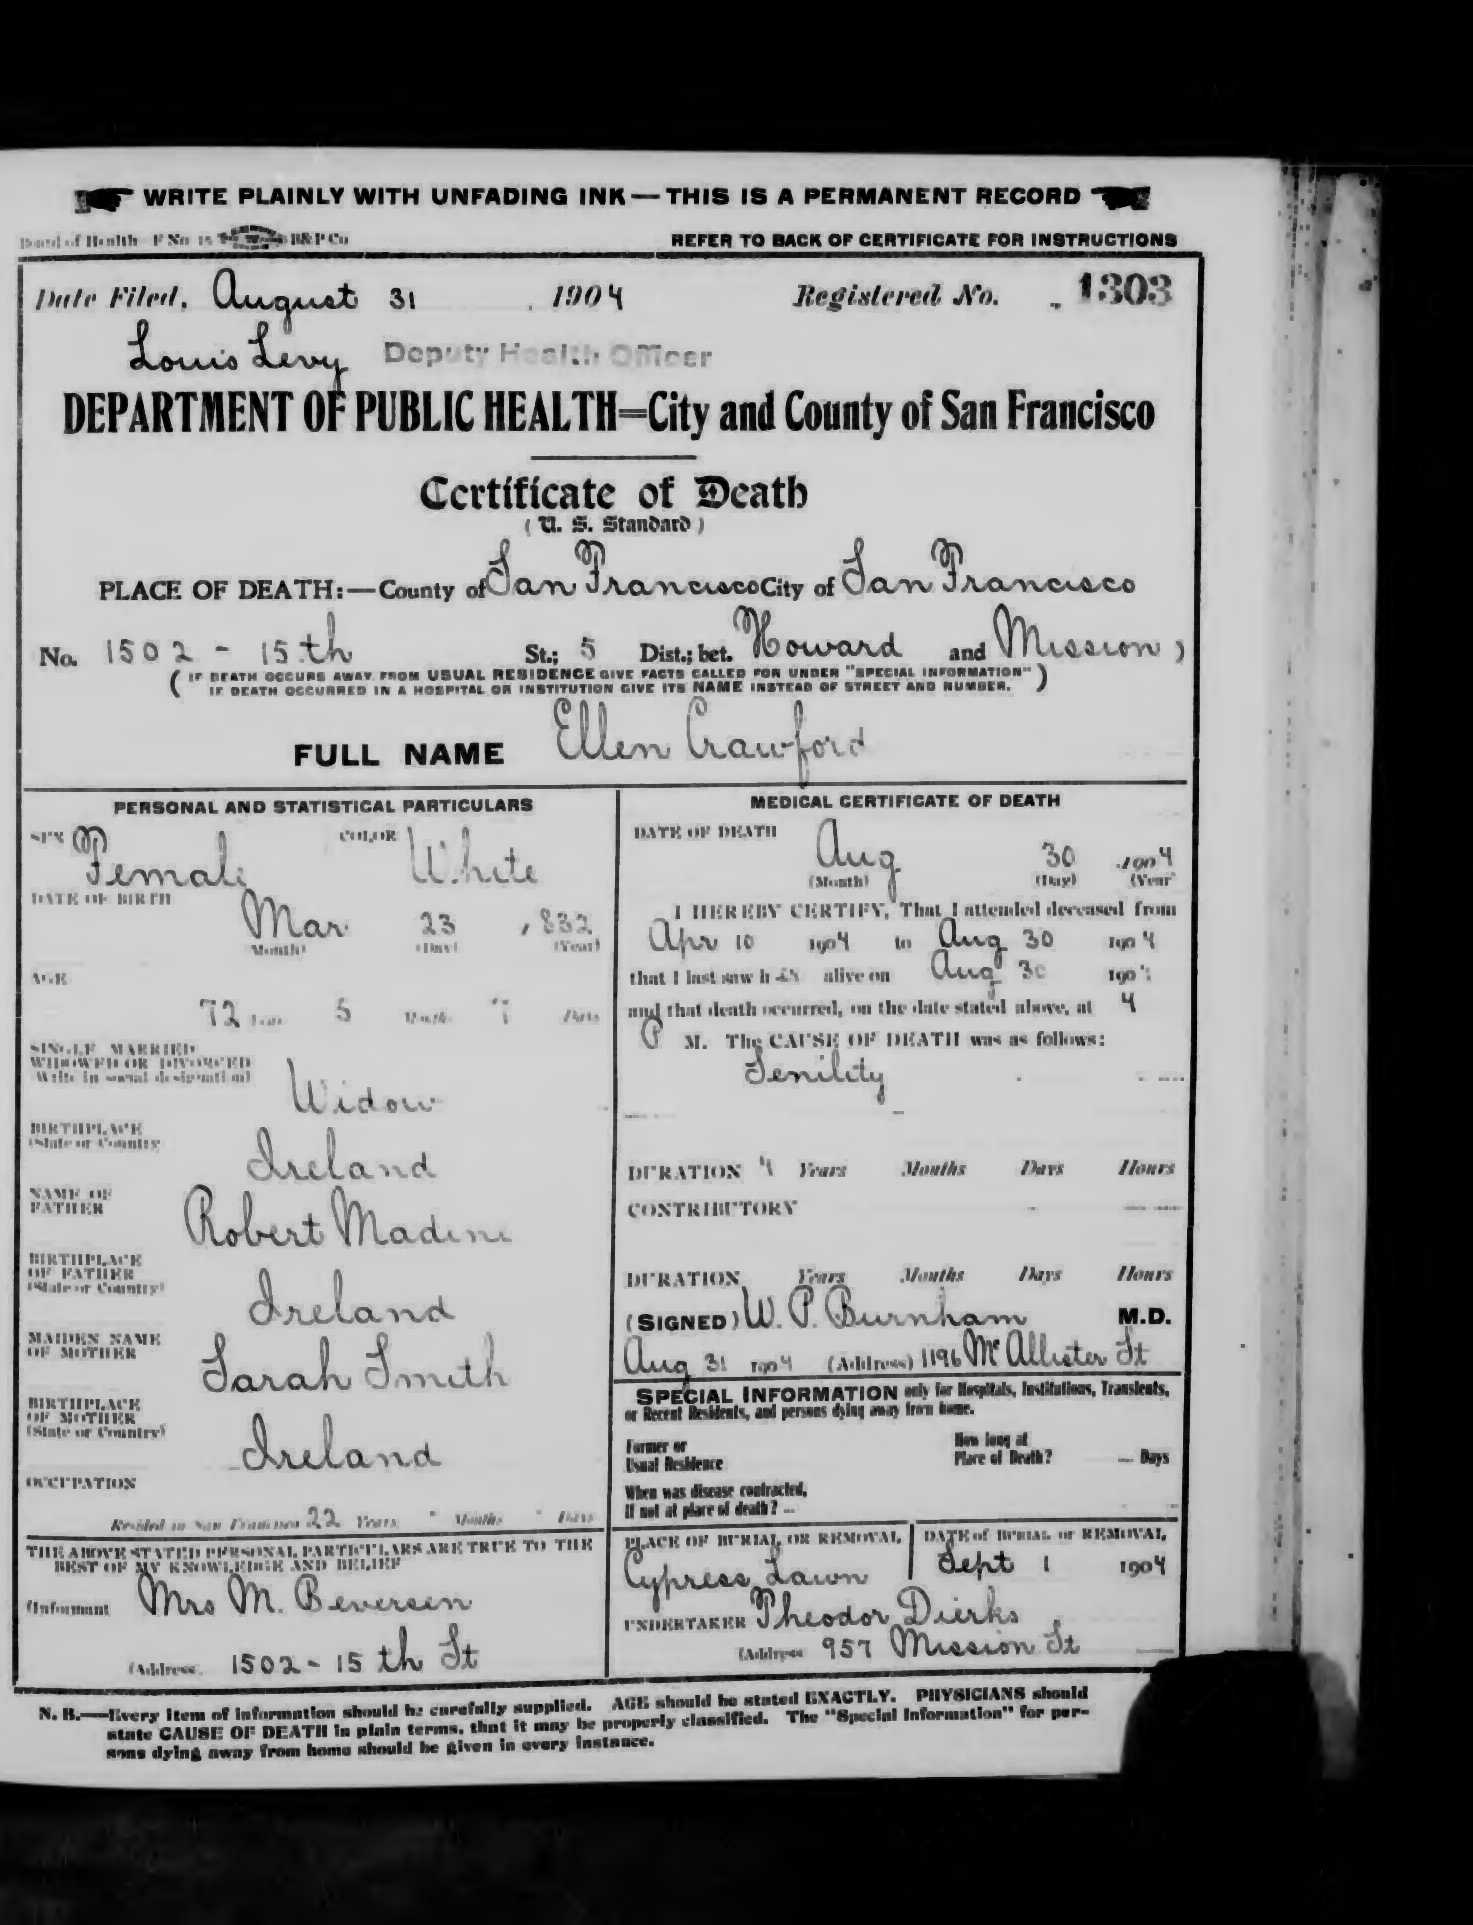 WRITE PLAINLY WITH UNFADING INK — THIS IS A PERMANENT RECORD
Board of Health F No 15 B&P Co
REFER TO BACK OF CERTIFICATE FOR INSTRUCTIONS
Date Filed, August 31 , 1904 Registered No. 1303
Louis Levy Deputy Health Officer
DEPARTMENT OF PUBLIC HEALTH=City and County of San Francisco
Certificate of Death
( U. S. Standard )
PLACE OF DEATH:—County of San Francisco City of San Francisco
No. 1502 - 15th St.; 5 Dist.; bet. Howard and Mission )
( IF DEATH OCCURS AWAY FROM USUAL RESIDENCE GIVE FACTS CALLED FOR UNDER "SPECIAL INFORMATION" )
IF DEATH OCCURRED IN A HOSPITAL OR INSTITUTION GIVE ITS NAME INSTEAD OF STREET AND NUMBER.
FULL NAME Ellen Crawford
PERSONAL AND STATISTICAL PARTICULARS
SEX Female COLOR White
DATE OF BIRTH
Mar 23 , 832
(Month) (Day) (Year)
AGE
72 Years 5 Months 7 Days
SINGLE MARRIED
WIDOWED OR DIVORCED
(Write in social designation)
Widow
BIRTHPLACE
(State or Country
Ireland
NAME OF
FATHER
Robert Madine
BIRTHPLACE
OF FATHER
(State or Country)
Ireland
MAIDEN NAME
OF MOTHER
Sarah Smith
BIRTHPLACE
OF MOTHER
(State or Country)
Ireland
OCCUPATION
Resided in San Francisco 22 Years Months Days
THE ABOVE STATED PERSONAL PARTICULARS ARE TRUE TO THE
BEST OF MY KNOWLEDGE AND BELIEF
(Informant Mrs M. Beversen
(Address. 1502 - 15th St
MEDICAL CERTIFICATE OF DEATH
DATE OF DEATH
Aug 30 1904
(Month) (Day) (Year
I HEREBY CERTIFY, That I attended deceased from
Apr 10 1904 to Aug 30 1904
that I last saw her alive on Aug 30 1904
and that death occurred, on the date stated above, at 4
P M. The CAUSE OF DEATH was as follows:
Senility
DURATION 4 Years Months Days Hours
CONTRIBUTORY
DURATION Years Months Days Hours
(SIGNED) W. P. Burnham M.D.
Aug 31 1904 (Address) 1196 McAllister St
SPECIAL INFORMATION only for Hospitals, Institutions, Transients,
or Recent Residents, and persons dying away from home.
Former or
Usual Residence
How long at
Place of Death? Days
When was disease contracted,
If not at place of death?
PLACE OF BURIAL OR REMOVAL
Cypress Lawn
DATE of BURIAL or REMOVAL
Sept 1 1904
UNDERTAKER Theodor Dierks
(Address 957 Mission St
N. B.—Every item of information should be carefully supplied. AGE should be stated EXACTLY. PHYSICIANS should
state CAUSE OF DEATH in plain terms, that it may be properly classified. The "Special Information" for per-
sons dying away from home should be given in every instance.